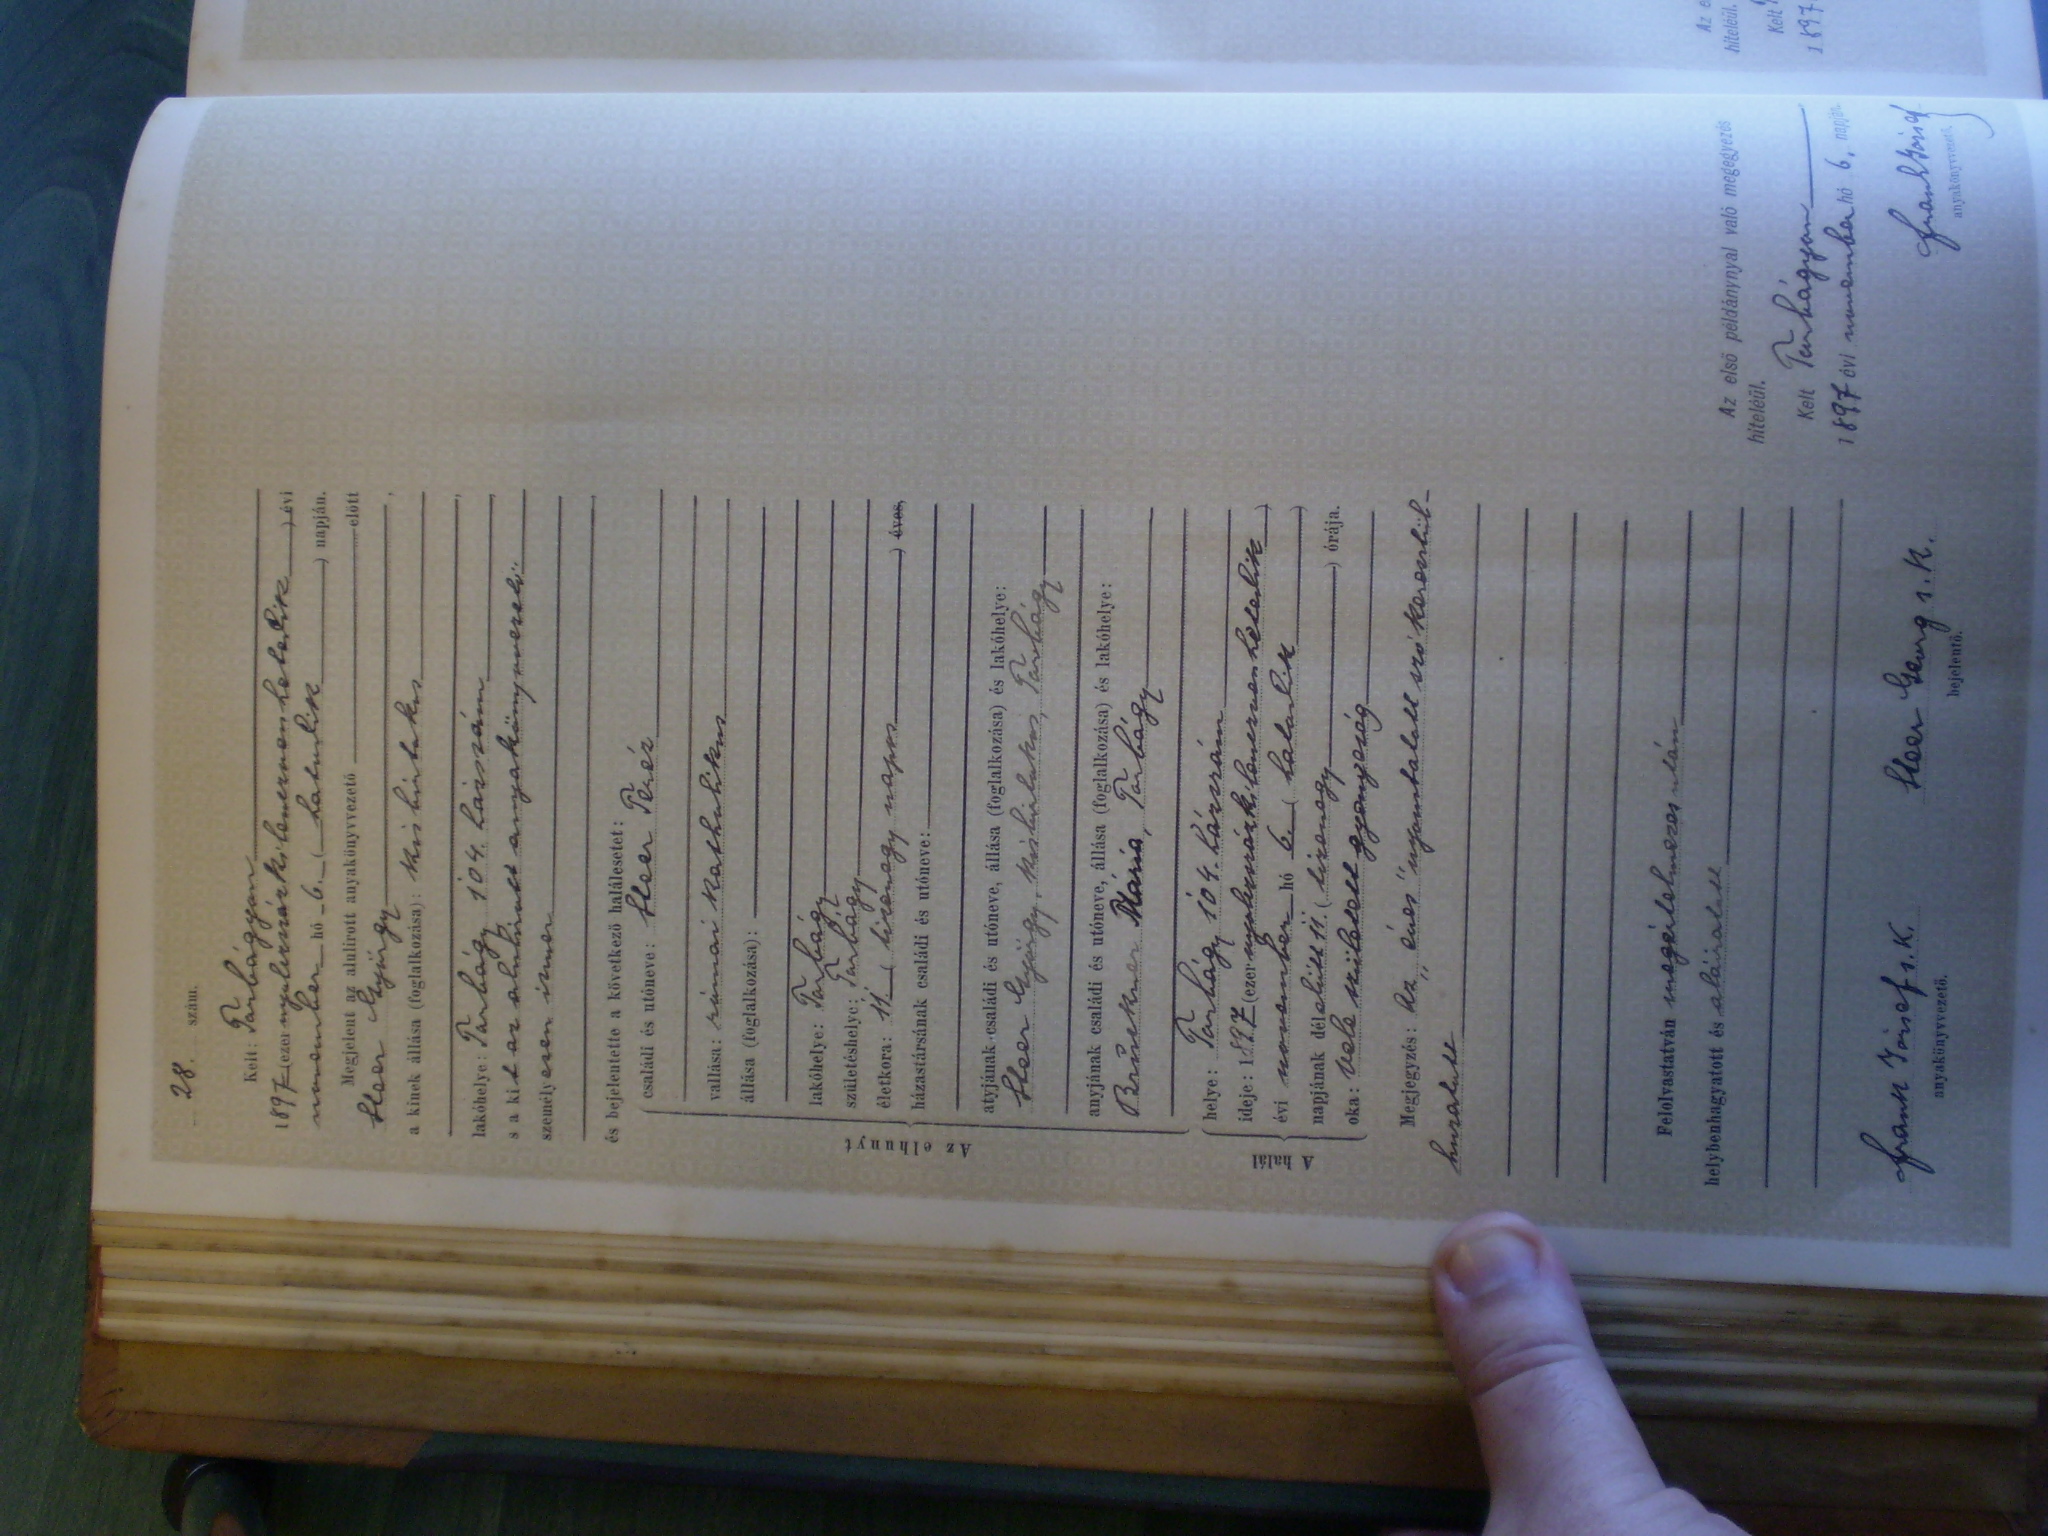 28. szám.
Kelt: Torbágyon
1897 (ezernyolczszázkilenczvenhetedik) évi
november hó 6. (hatodik) napján.
Megjelent az alulirott anyakönyvvezető előtt
Heer György,
a kinek állása (foglalkozása): kisbirtokos
lakóhelye: Torbágy 104. házszám,
s a kit az alulírott anyakönyvvezető
személyesen ismer,
és bejelentette a következő halálesetet:
családi és utóneve: Heer Teréz
vallása: római katholikus
állása (foglalkozása):
lakóhelye: Torbágy
születéshelye: Torbágy
életkora: 11 (tizenegy napos) éves,
házastársának családi és utóneve:
atyjának családi és utóneve, állása (foglalkozása) és lakóhelye:
Heer György, kisbirtokos, Torbágy
anyjának családi és utóneve, állása (foglalkozása) és lakóhelye:
Mária, Torbágy
Az elhunyt
helye: Torbágy 104. házszám
ideje: 1897 (ezernyolczszázkilenczvenhetedik)
évi november hó 6. (hatodik)
napjának délelőtt 11. (tizenegy) órája.
oka: Vele született gyengeség
A halál
Megjegyzés: Az „éves" nyomtatott szó keresztül-
huzatott
Felolvastatván megértelmezés után
helybenhagyatott és aláíratott
Frank József s. k.
anyakönyvvezető.
Heer Georg s. k.
bejelentő.
Az első példánnyal való megegyezés
hiteléül.
Kelt Torbágyon
1897 évi november hó 6. napján.
Frank József
anyakönyvvezető.
hiteléül.
Kelt
1897.